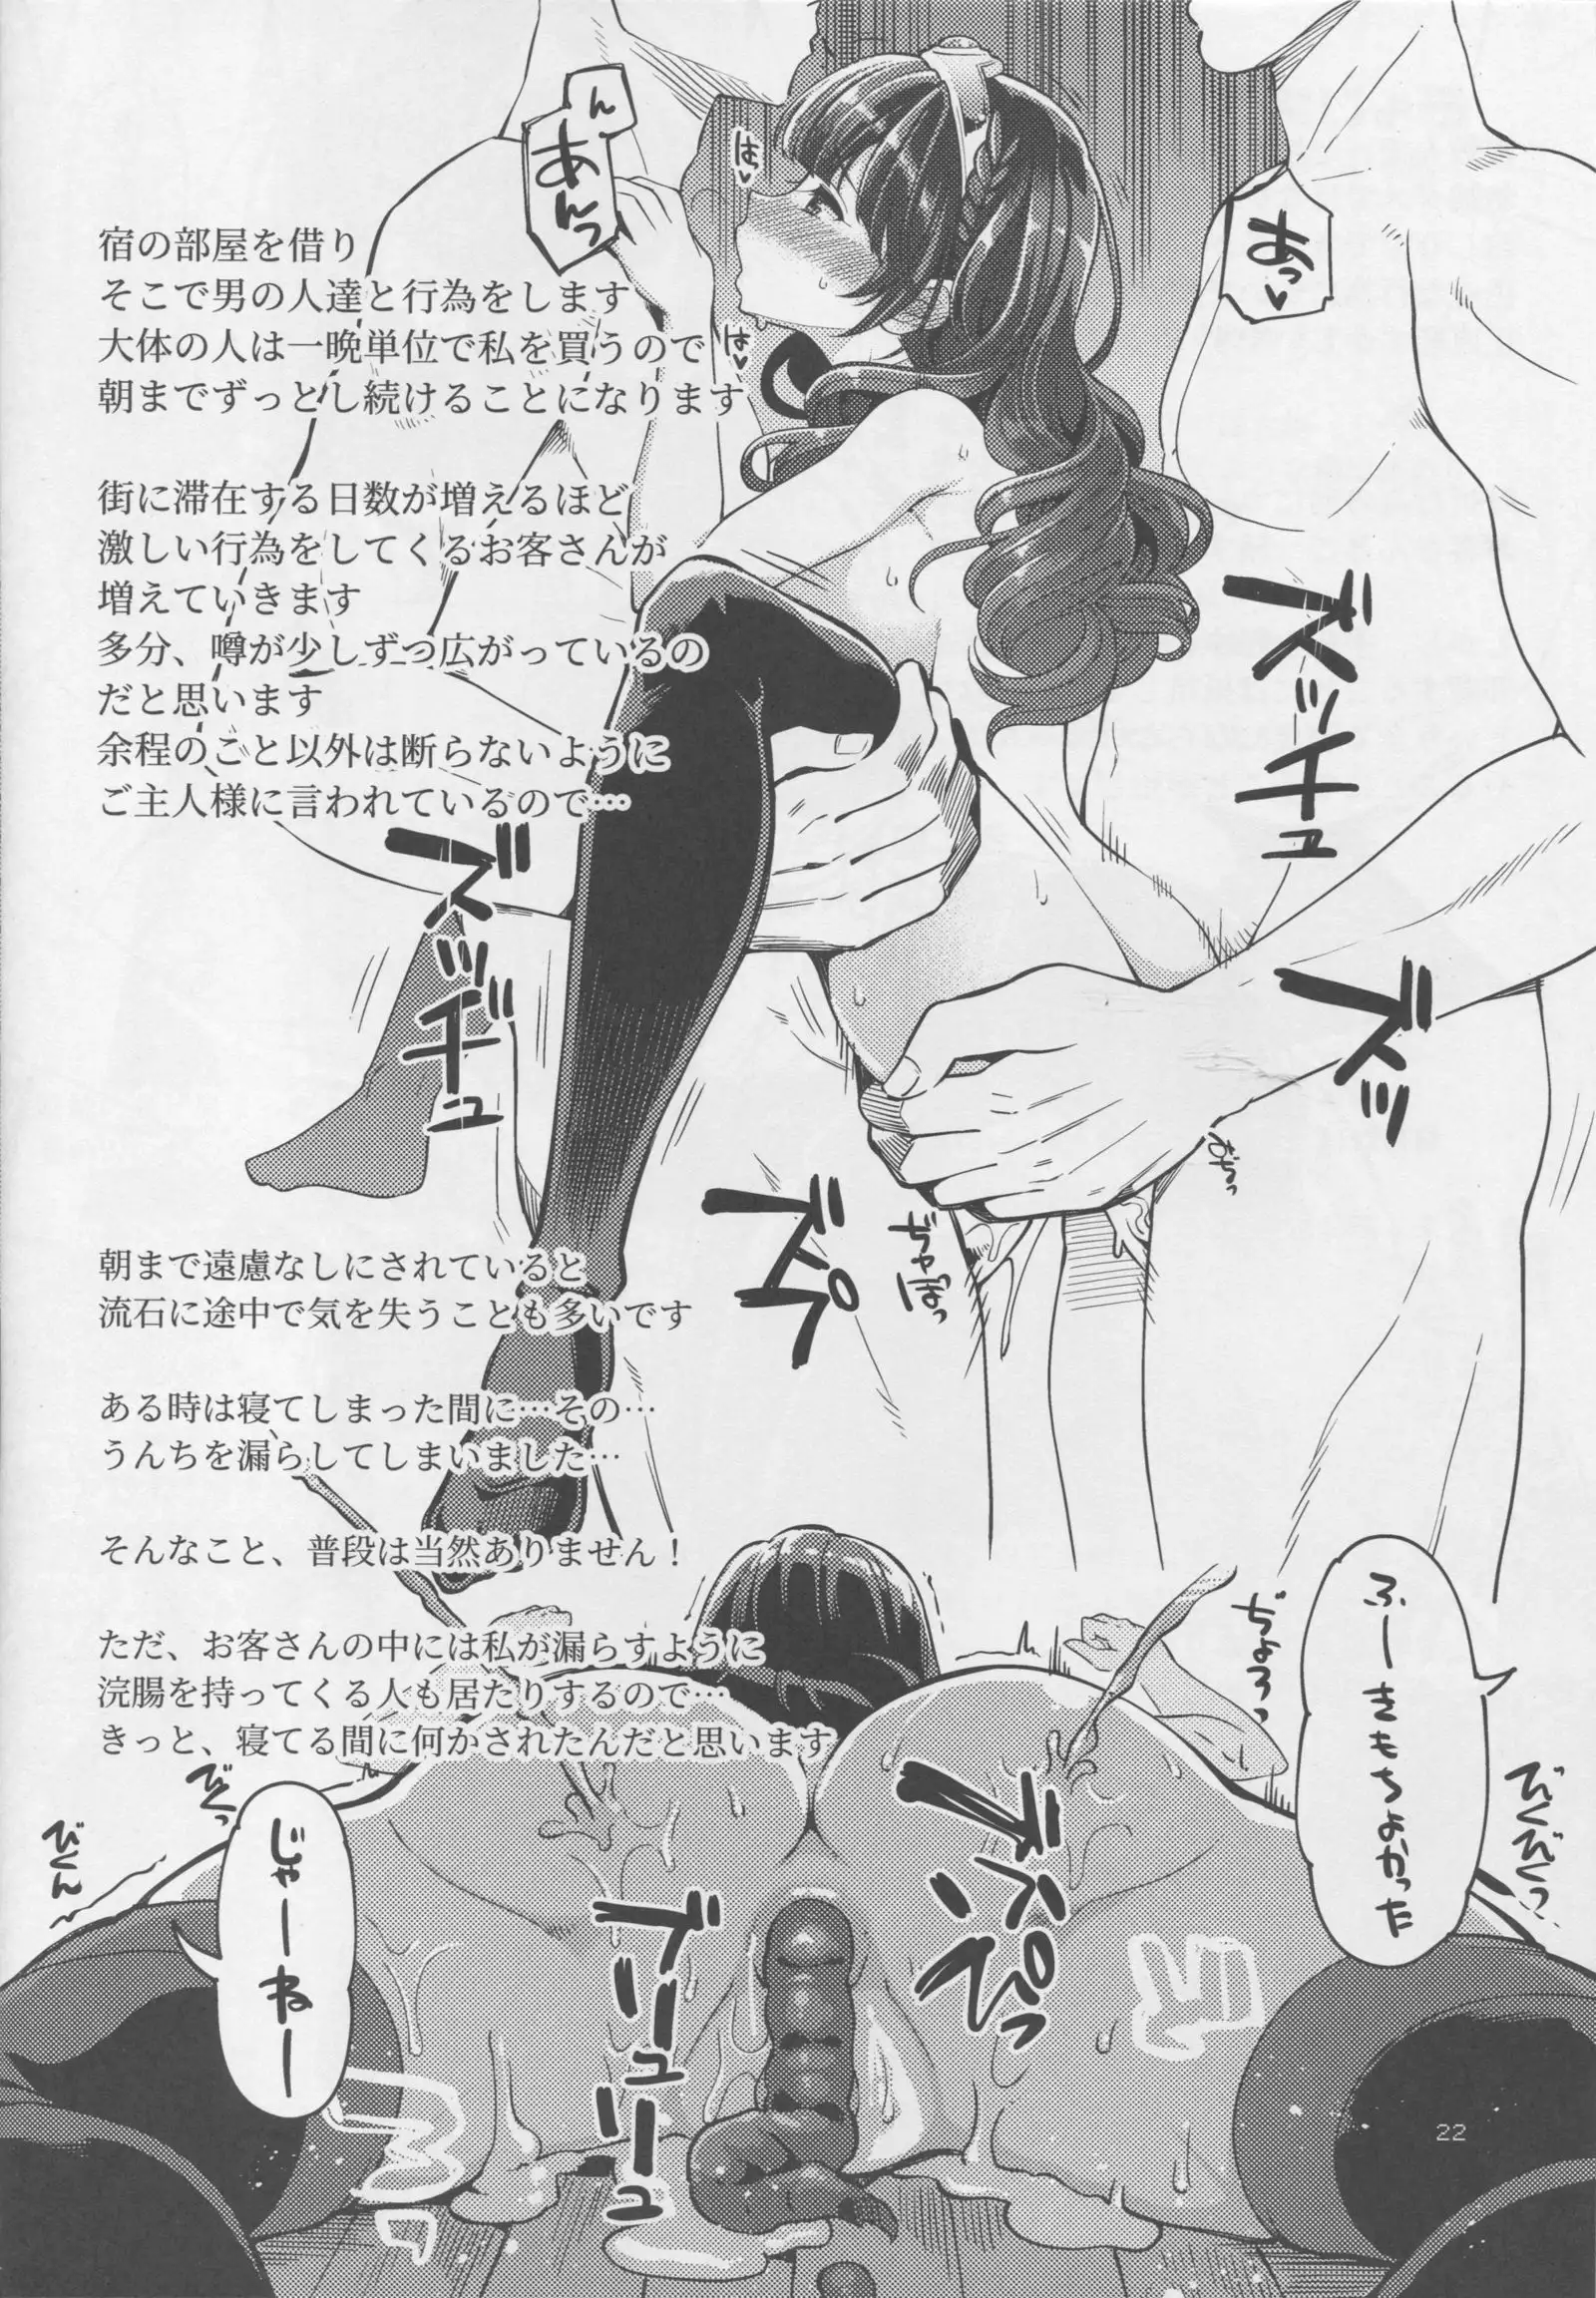 宿の部屋を借り
そこで男の人達と行為をします
大体の人は一晩単位で私を買うので
朝までずっとし続けることになります
街に滞在する日数が増えるほど
激しい行為をしてくるお客さんが
増えていきます
多分、噂が少しずつ広がっているの
だと思います
余程のこと以外は断らないように
ご主人様に言われているので…
あっ
ん
あんっ
はっ
はっ
ズッチュ
ズッヂュ
ズッ
ズペ
ぢゅぽっ
おぢっ
朝まで遠慮なしにされていると
流石に途中で気を失うことも多いです
ある時は寝てしまった間に…その…
うんちを漏らしてしまいました…
そんなこと、普段は当然ありません！
ただ、お客さんの中には私が漏らすように
浣腸を持ってくる人も居たりするので…
きっと、寝てる間に何かされたんだと思います
ふーきもちよかった
じゃーねー
ぢょろっ
びくびくっ
びくっ
びくん
ブリュリュ
22